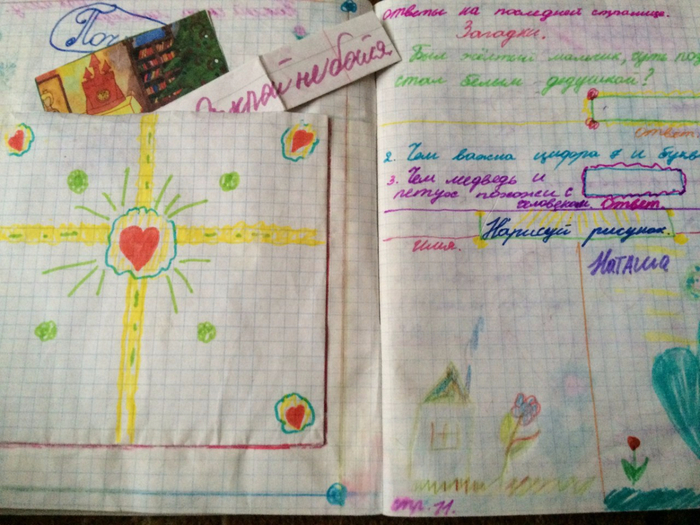 Открой не бойся
ответы на последней странице.
Загадки.
Был жёлтый мальчик, чуть
стал белым дедушкой?
ответ
2. Чем важна цифора и
3. Чем медведь и
петух похожи с
человеком. Ответ
Нарисуй рисунок.
Имя.
Наташа
стр. 11.